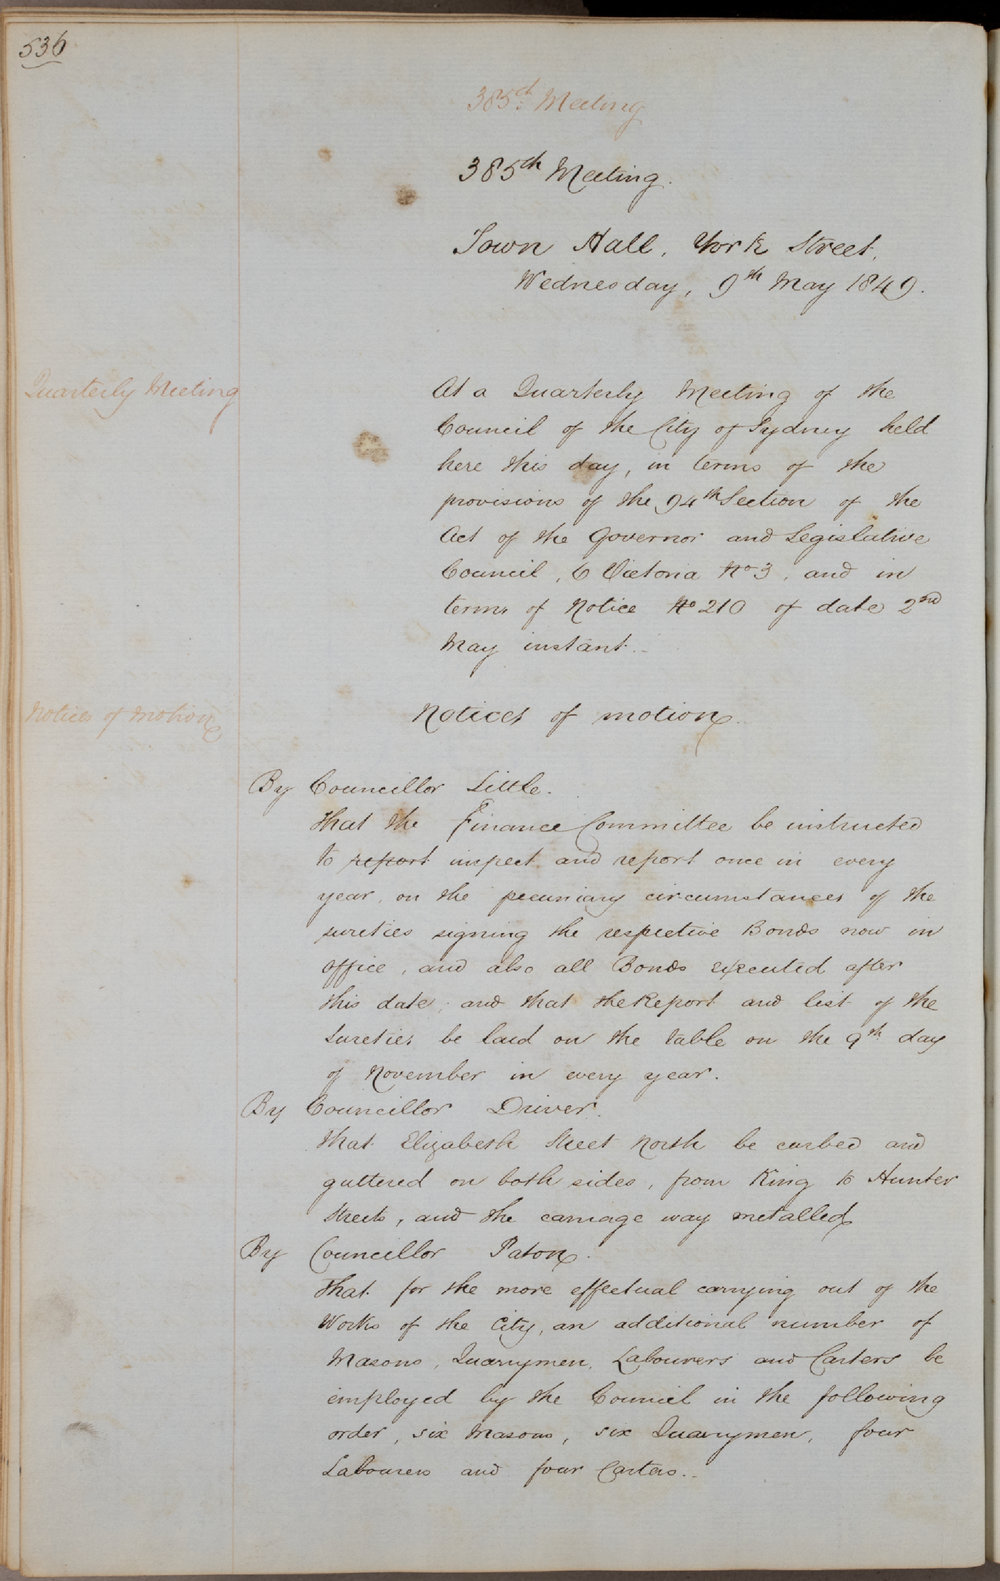 536
385th Meeting
385th Meeting.
Town Hall, York Street,
Wednesday, 9th May 1849.
Quarterly Meeting
At a Quarterly Meeting of the
Council of the City of Sydney held
here this day, in terms of the
provisions of the 94th Section of the
Act of the Governor and Legislative
Council, 6 Victoria No 3, and in
terms of Notice No 210 of date 2nd
May instant.
Notices of Motion
Notices of motion.
By Councillor Little.
That the Finance Committee be instructed
to report inspect and report once in every
year, on the pecuniary circumstances of the
sureties signing the respective Bonds now in
office, and also all Bonds executed after
this date; and that the Report and list of the
Sureties be laid on the table on the 9th day
of November in every year.
By Councillor Driver.
That Elizabeth Street North be curbed and
guttered on both sides, from King to Hunter
Streets, and the carriage way metalled
By Councillor Paton.
That for the more effectual carrying out of the
Works of the City, an additional number of
Masons, Quarrymen, Labourers and Carters be
employed by the Council in the following
order, six Masons, six Quarrymen, four
Labourers and four Carters.